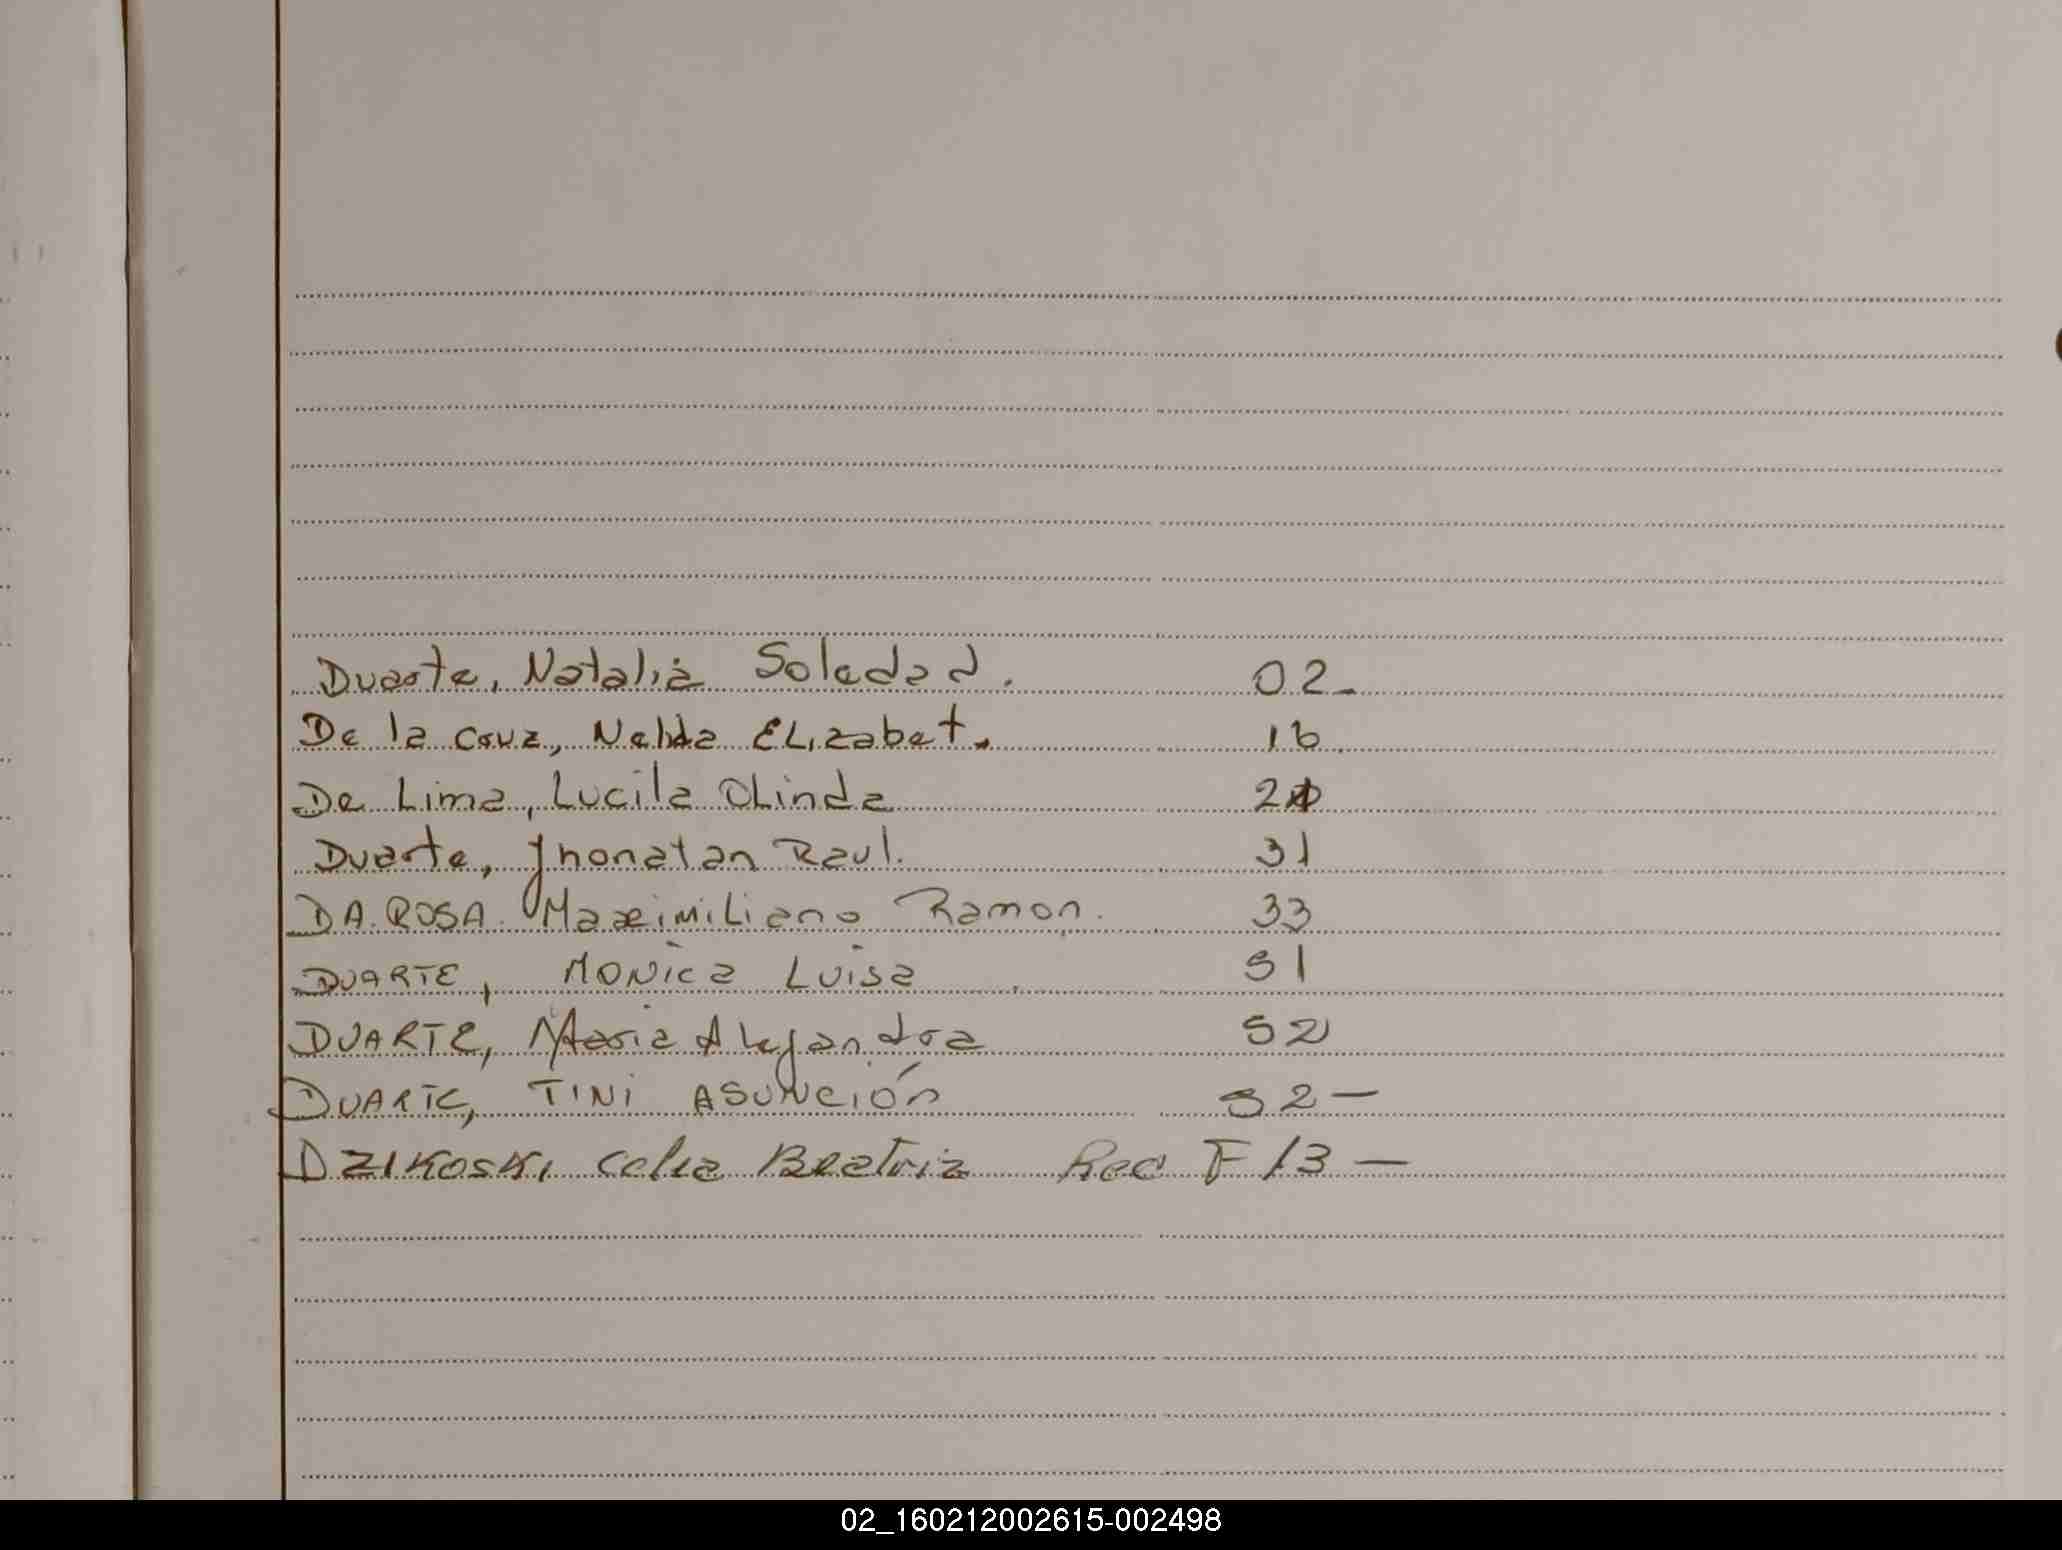 Duarte, Natalia Soledad. 02-
De la Cruz, Nelida ELizabet. 16
De Lima, Lucila OLinda
Duarte, Jhonatan Raul. 31
DA.ROSA. MaximiLiano Ramon. 33
DUARTE, MONica Luisa 51
DUARTE, Maria Alejandra 52
DUARTE, TINi ASUNción 52-
DZIKOSKI Celia Beatriz Rec F 13-
02_160212002615-002498